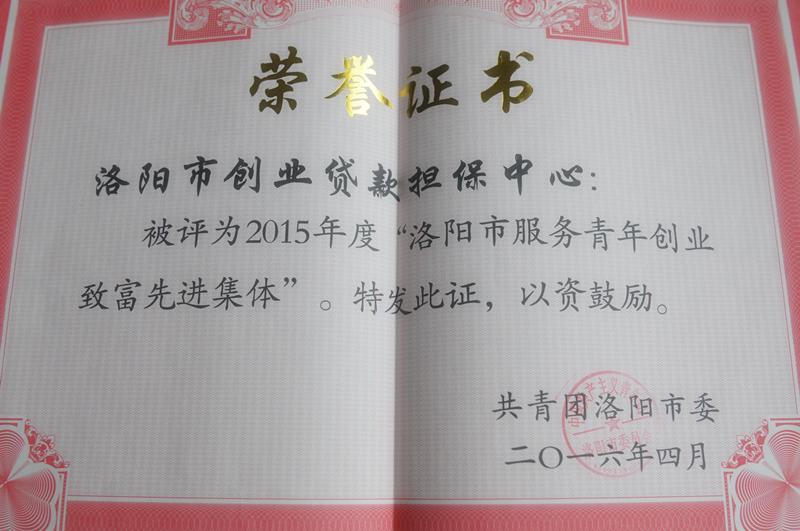 荣誉证书
洛阳市创业贷款担保中心：
被评为2015年度“洛阳市服务青年创业
致富先进集体”。特发此证，以资鼓励。
共青团洛阳市委
二〇一六年四月